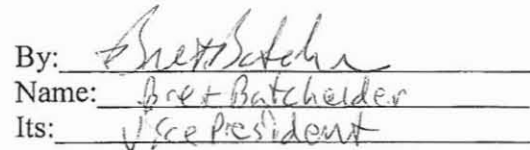 By: Bret Batchelder
Name: Bret Batchelder
Its: Vice President